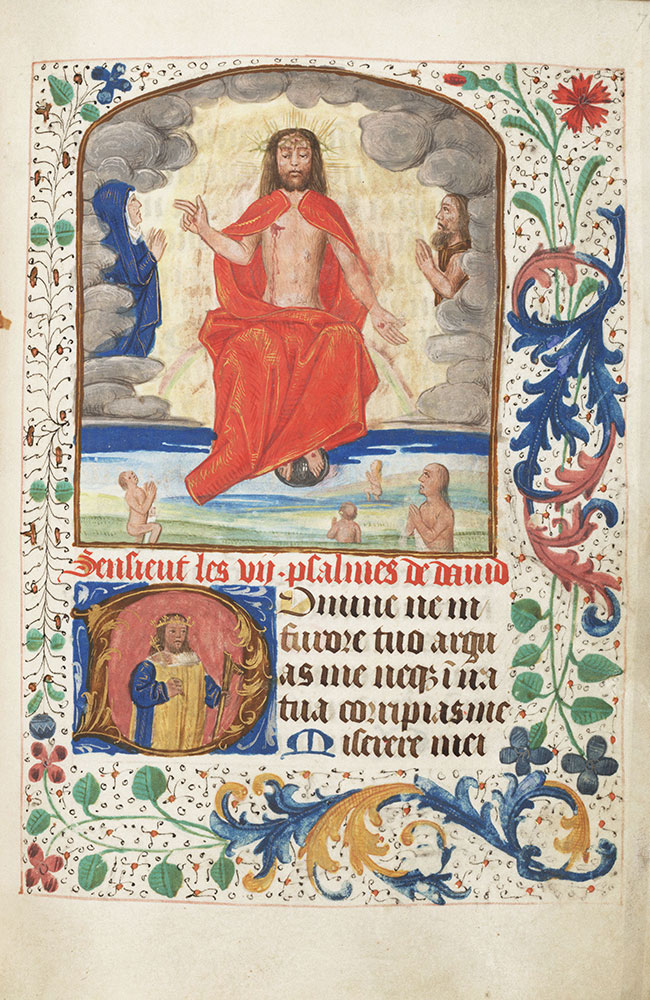 Sensieut les vij · psalmes de david
Domine ne in
furore tuo argu
as me neqꝫ ī ira
tua corripias me
Miserere mei